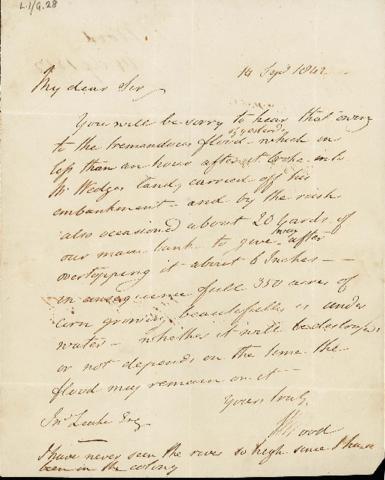 L.1/G.28
14 Sepr 1842
My dear Sir,
You will be sorry to hear that owing
to the tremendous flood yesterday which in
less than an hour after it broke into
Mr Wedges land, carried off his
embankment - and by the rush
also occasioned about 20 yards of
our main bank to give away after
overtopping it about 6 Inches -
in consequence full 350 acres of
corn growing beautifully is under
water - whether it will be destroyed
or not depends on the time the
flood may remain on it -
Yours truly,
Wood
Jno Leake Esq
I have never seen the river so high since I have
been in the colony